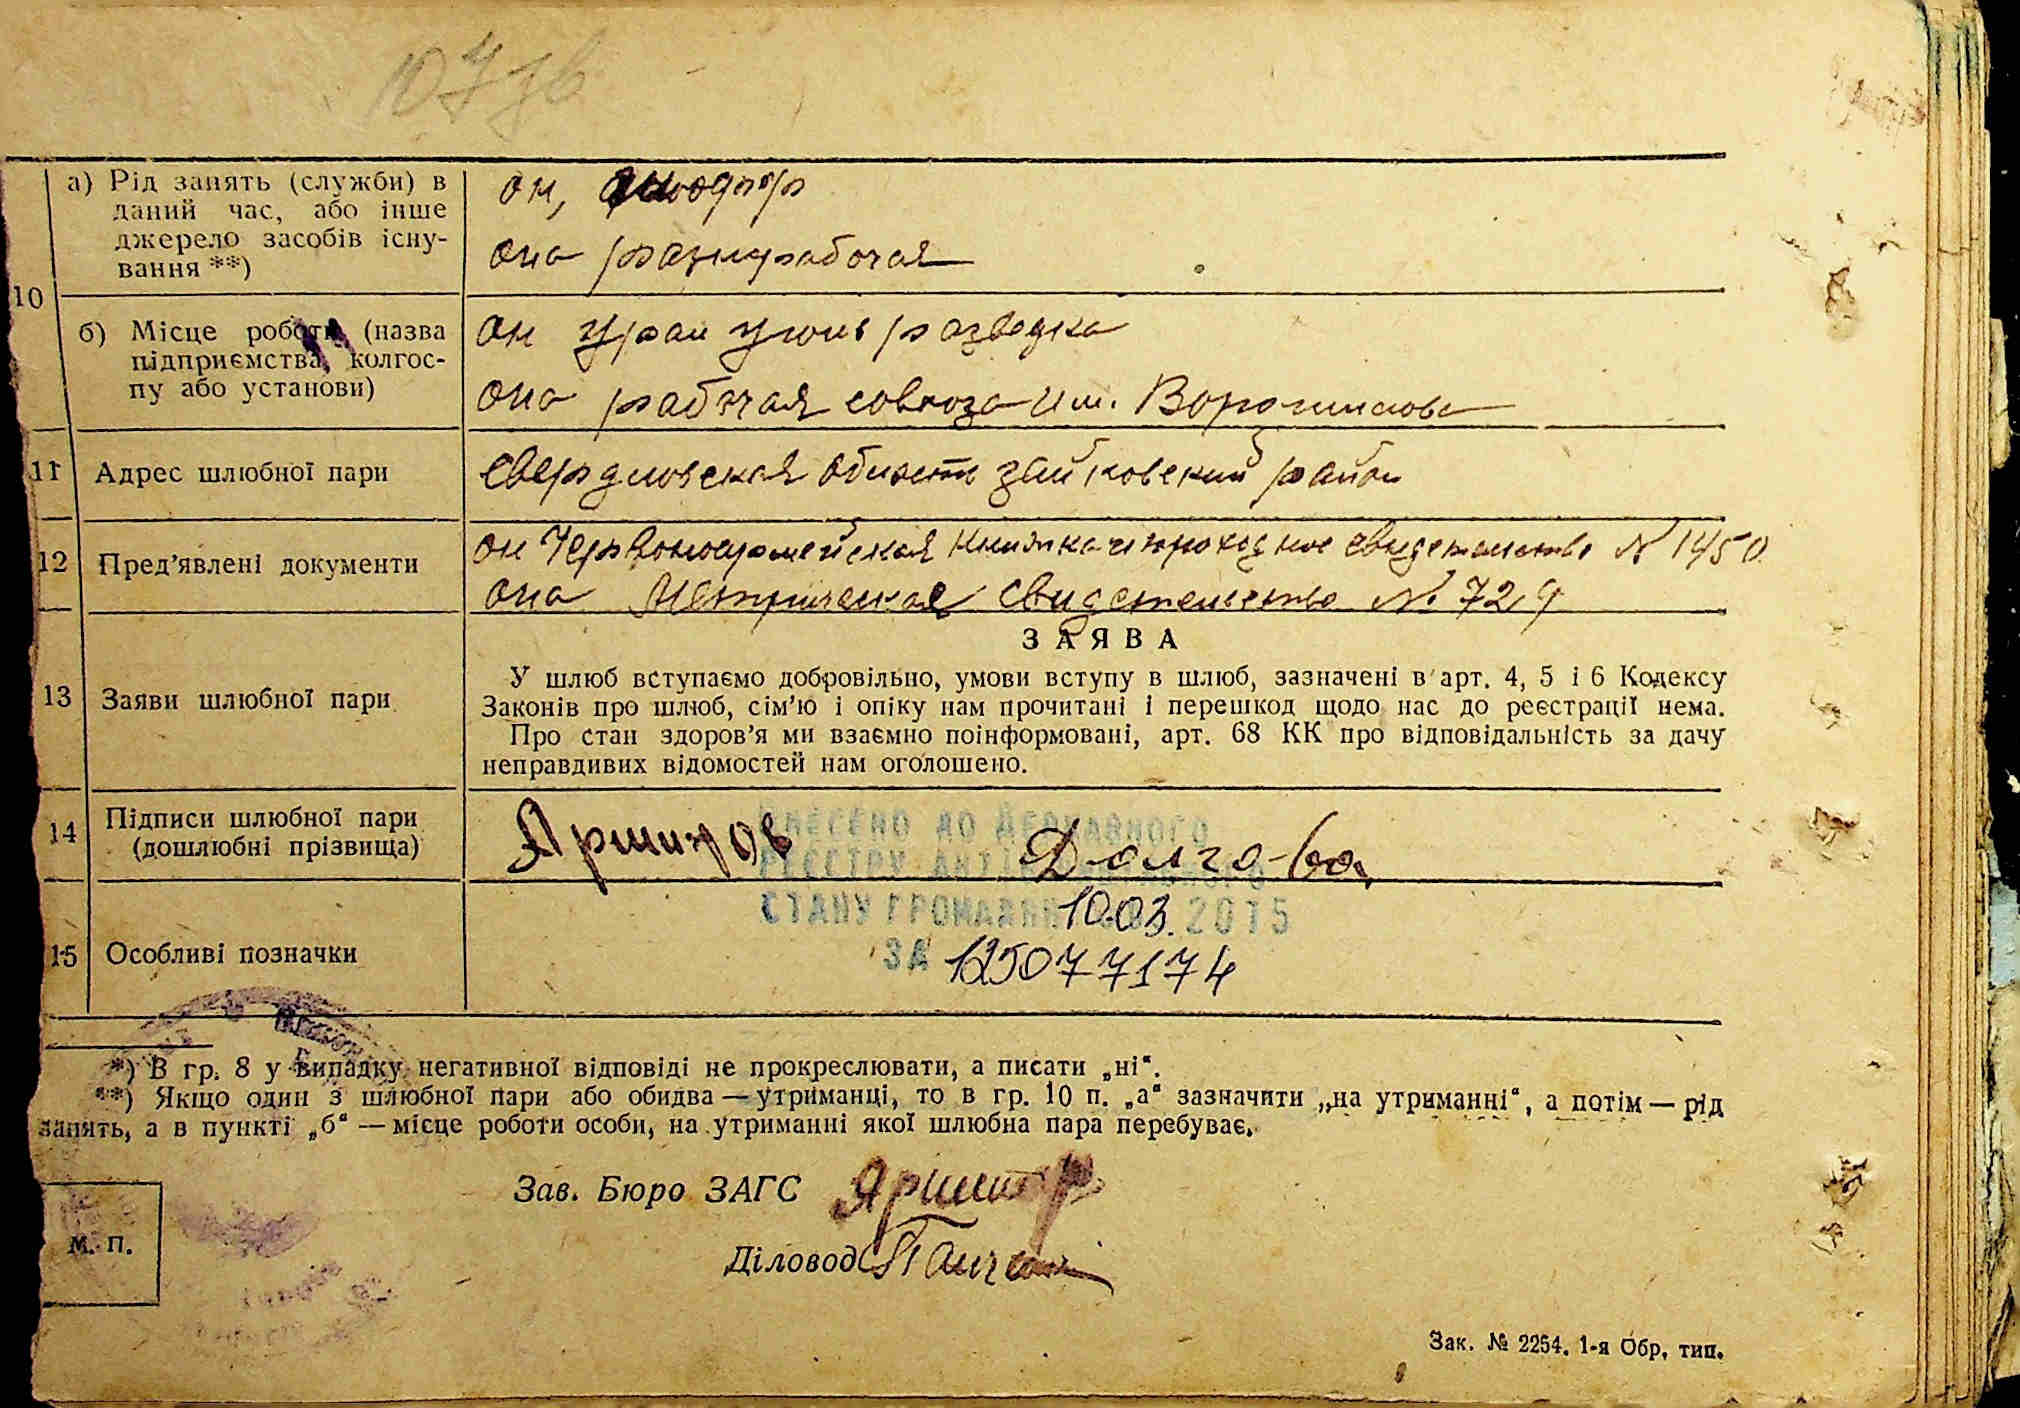 а) Рід занять (служби) в
даний час, або інше
джерело засобів існу-
вання **)
он,
она разнорабочая
10
б) Місце роботи (назва
підприємства, колгос-
пу або установи)
он разведка
она рабочая совхоза им. Ворошилова
11 Адрес шлюбної пари
свердловская область зайковский район
12 Пред’явлені документи
он Червоноармейская книжка и проходное свидетельство № 1450
она Метрическая свидетельство №
ЗАЯВА
13 Заяви шлюбної пари
У шлюб вступаємо добровільно, умови вступу в шлюб, зазначені в арт. 4, 5 і 6 Кодексу
Законів про шлюб, сім’ю і опіку нам прочитані і перешкод щодо нас до реєстрації нема.
Про стан здоров’я ми взаємно поінформовані, арт. 68 КК про відповідальність за дачу
неправдивих відомостей нам оголошено.
14 Підписи шлюбної пари
(дошлюбні прізвища)
Долго-ва
ВНЕСЕНО ДО ДЕРЖАВНОГО
РЕЄСТРУ АКТІВ ЦИВІЛЬНОГО
СТАНУ ГРОМАДЯН 10.03.2015
ЗА 125077174
15 Особливі позначки
*) В гр. 8 у випадку негативної відповіді не прокреслювати, а писати „ні“.
**) Якщо один з шлюбної пари або обидва — утриманці, то в гр. 10 п. „а“ зазначити „на утриманні“, а потім — рід
занять, а в пункті „б“ — місце роботи особи, на утриманні якої шлюбна пара перебуває.
Зав. Бюро ЗАГС
Діловод
М. П.
Зак. № 2254. 1-я Обр. тип.